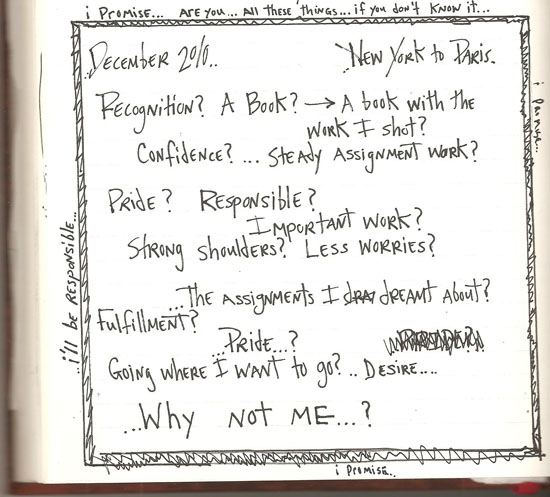 i Promise... Are you... All these things... if you don't know it...
December 2010.. New York to Paris.
Recognition? A Book? → A book with the
work I shot?
Confidence? ... Steady Assignment work?
Pride? Responsible?
Important work?
Strong shoulders? Less worries?
...The assignments I dreamt about?
Fulfillment?
...Pride...?
Going where I want to go? .. Desire....
...Why not me...?
i Promise..
...i'll be responsible...
i Promise...